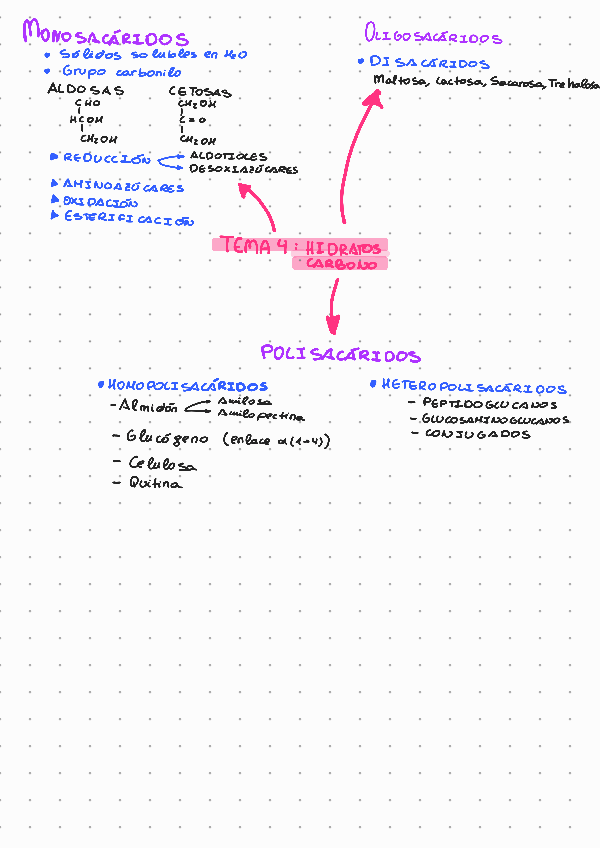 MONOSACÁRIDOS
• Sólidos solubles en H2O
• Grupo carbonilo
ALDOSAS CETOSAS
CHO CH2OH
HCOH C=O
CH2OH CH2OH
▶ REDUCCIÓN ALDOTIOLES
DESOXIAZÚCARES
▶ AMINOAZÚCARES
▶ OXIDACIÓN
▶ ESTERIFICACIÓN
OLIGOSACÁRIDOS
• DISACÁRIDOS
Maltosa, Lactosa, Sacarosa, Trehalosa
TEMA 4: HIDRATOS
CARBONO
POLISACÁRIDOS
• HOMOPOLISACÁRIDOS
- Almidón Amilosa
Amilopectina
- Glucógeno (enlace α(1-4))
- Celulosa
- Quitina
• HETEROPOLISACÁRIDOS
- PEPTIDOGLUCANOS
- GLUCOSAMINOGLUCANOS
- CONJUGADOS